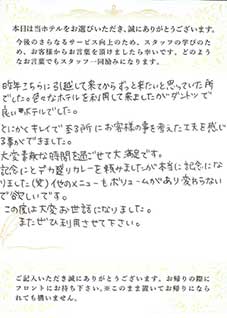 本日は当ホテルをお選びいただき、誠にありがとうございます。
今後のさらなるサービス向上のため、スタッフの学びのため、
お客様からお言葉を頂けましたら幸いです。どのような
お言葉でもスタッフ一同励みになります。
昨年こちらに引越して来てからずっと来たいと思っていた所
でした。色々なホテルを利用して来ましたがダントツで
良いホテルでした。
とにかくキレイで至る所にお客様の事を考えた工夫を感じ
る事ができました。
大変素敵な時間を過ごせて大満足です。
記念にとデカ盛りカレーを頼みましたが本当に記念にな
りました(笑)他のメニューもボリュームがあり変わらない
で欲しいです。
この度は大変お世話になりました。
またぜひ利用させて下さい。
ご記入いただき誠にありがとうございます。お帰りの際に
フロントにお持ち下さい。※このまま置いてお帰りになら
れても構いません。